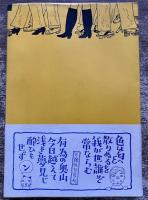 色は匂へど
散りぬるを
我が世誰ぞ
常ならむ
有為の奥山
今日越えて
浅き夢見じ
酔ひも
せず ン